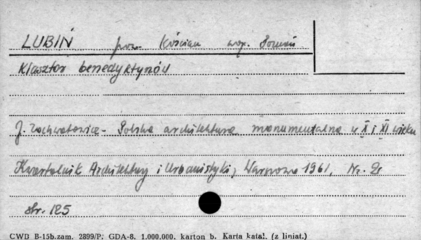 LUBIŃ pow. Kościan woj. Poznań
Klasztor benedyktynów
J. Zachwatowicz - Polska architektura monumentalna w X i XI wieku
Kwartalnik Architektury i Urbanistyki, Warszawa 1961, Nr. 2
str. 125
CWD B-15b.zam. 2899/P; GDA-8. 1.000.000. karton b. Karta katal. (z liniat.)